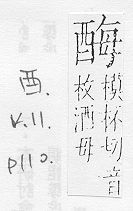 酶
模杯切音
枚酒母
酉.
V.11.
P110.